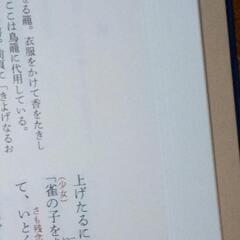 せる籠。衣服をかけて香をたきし
ここは鳥籠に代用している。
「きよげなるお
上げたるに
(少女)
「雀の子を
さも残念
て、いとく